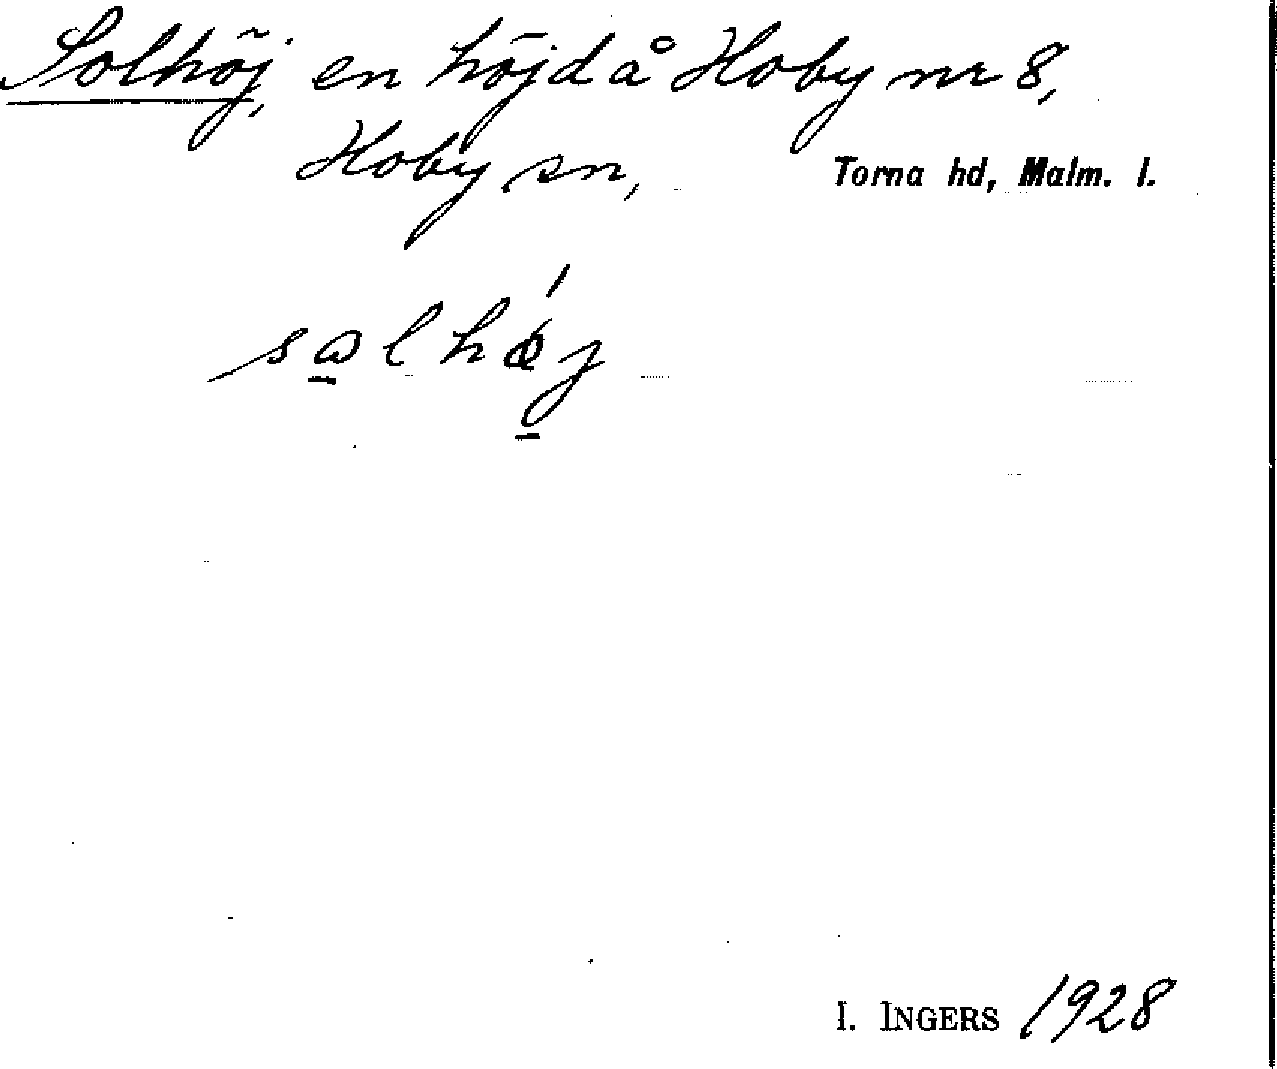 Solhöj, en höjd å Hoby nr 8,
Hoby sn, Torna hd, Malm. l.
I. INGERS 1928